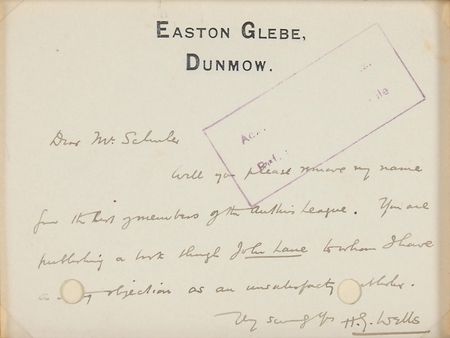 EASTON GLEBE,
DUNMOW.
Dear Mr. Schuler
Will you please remove my name
from the list of members of the Authors League. You are
publishing a book through John Lane to whom I have
objection as an unsatisfactory
H.G. Wells